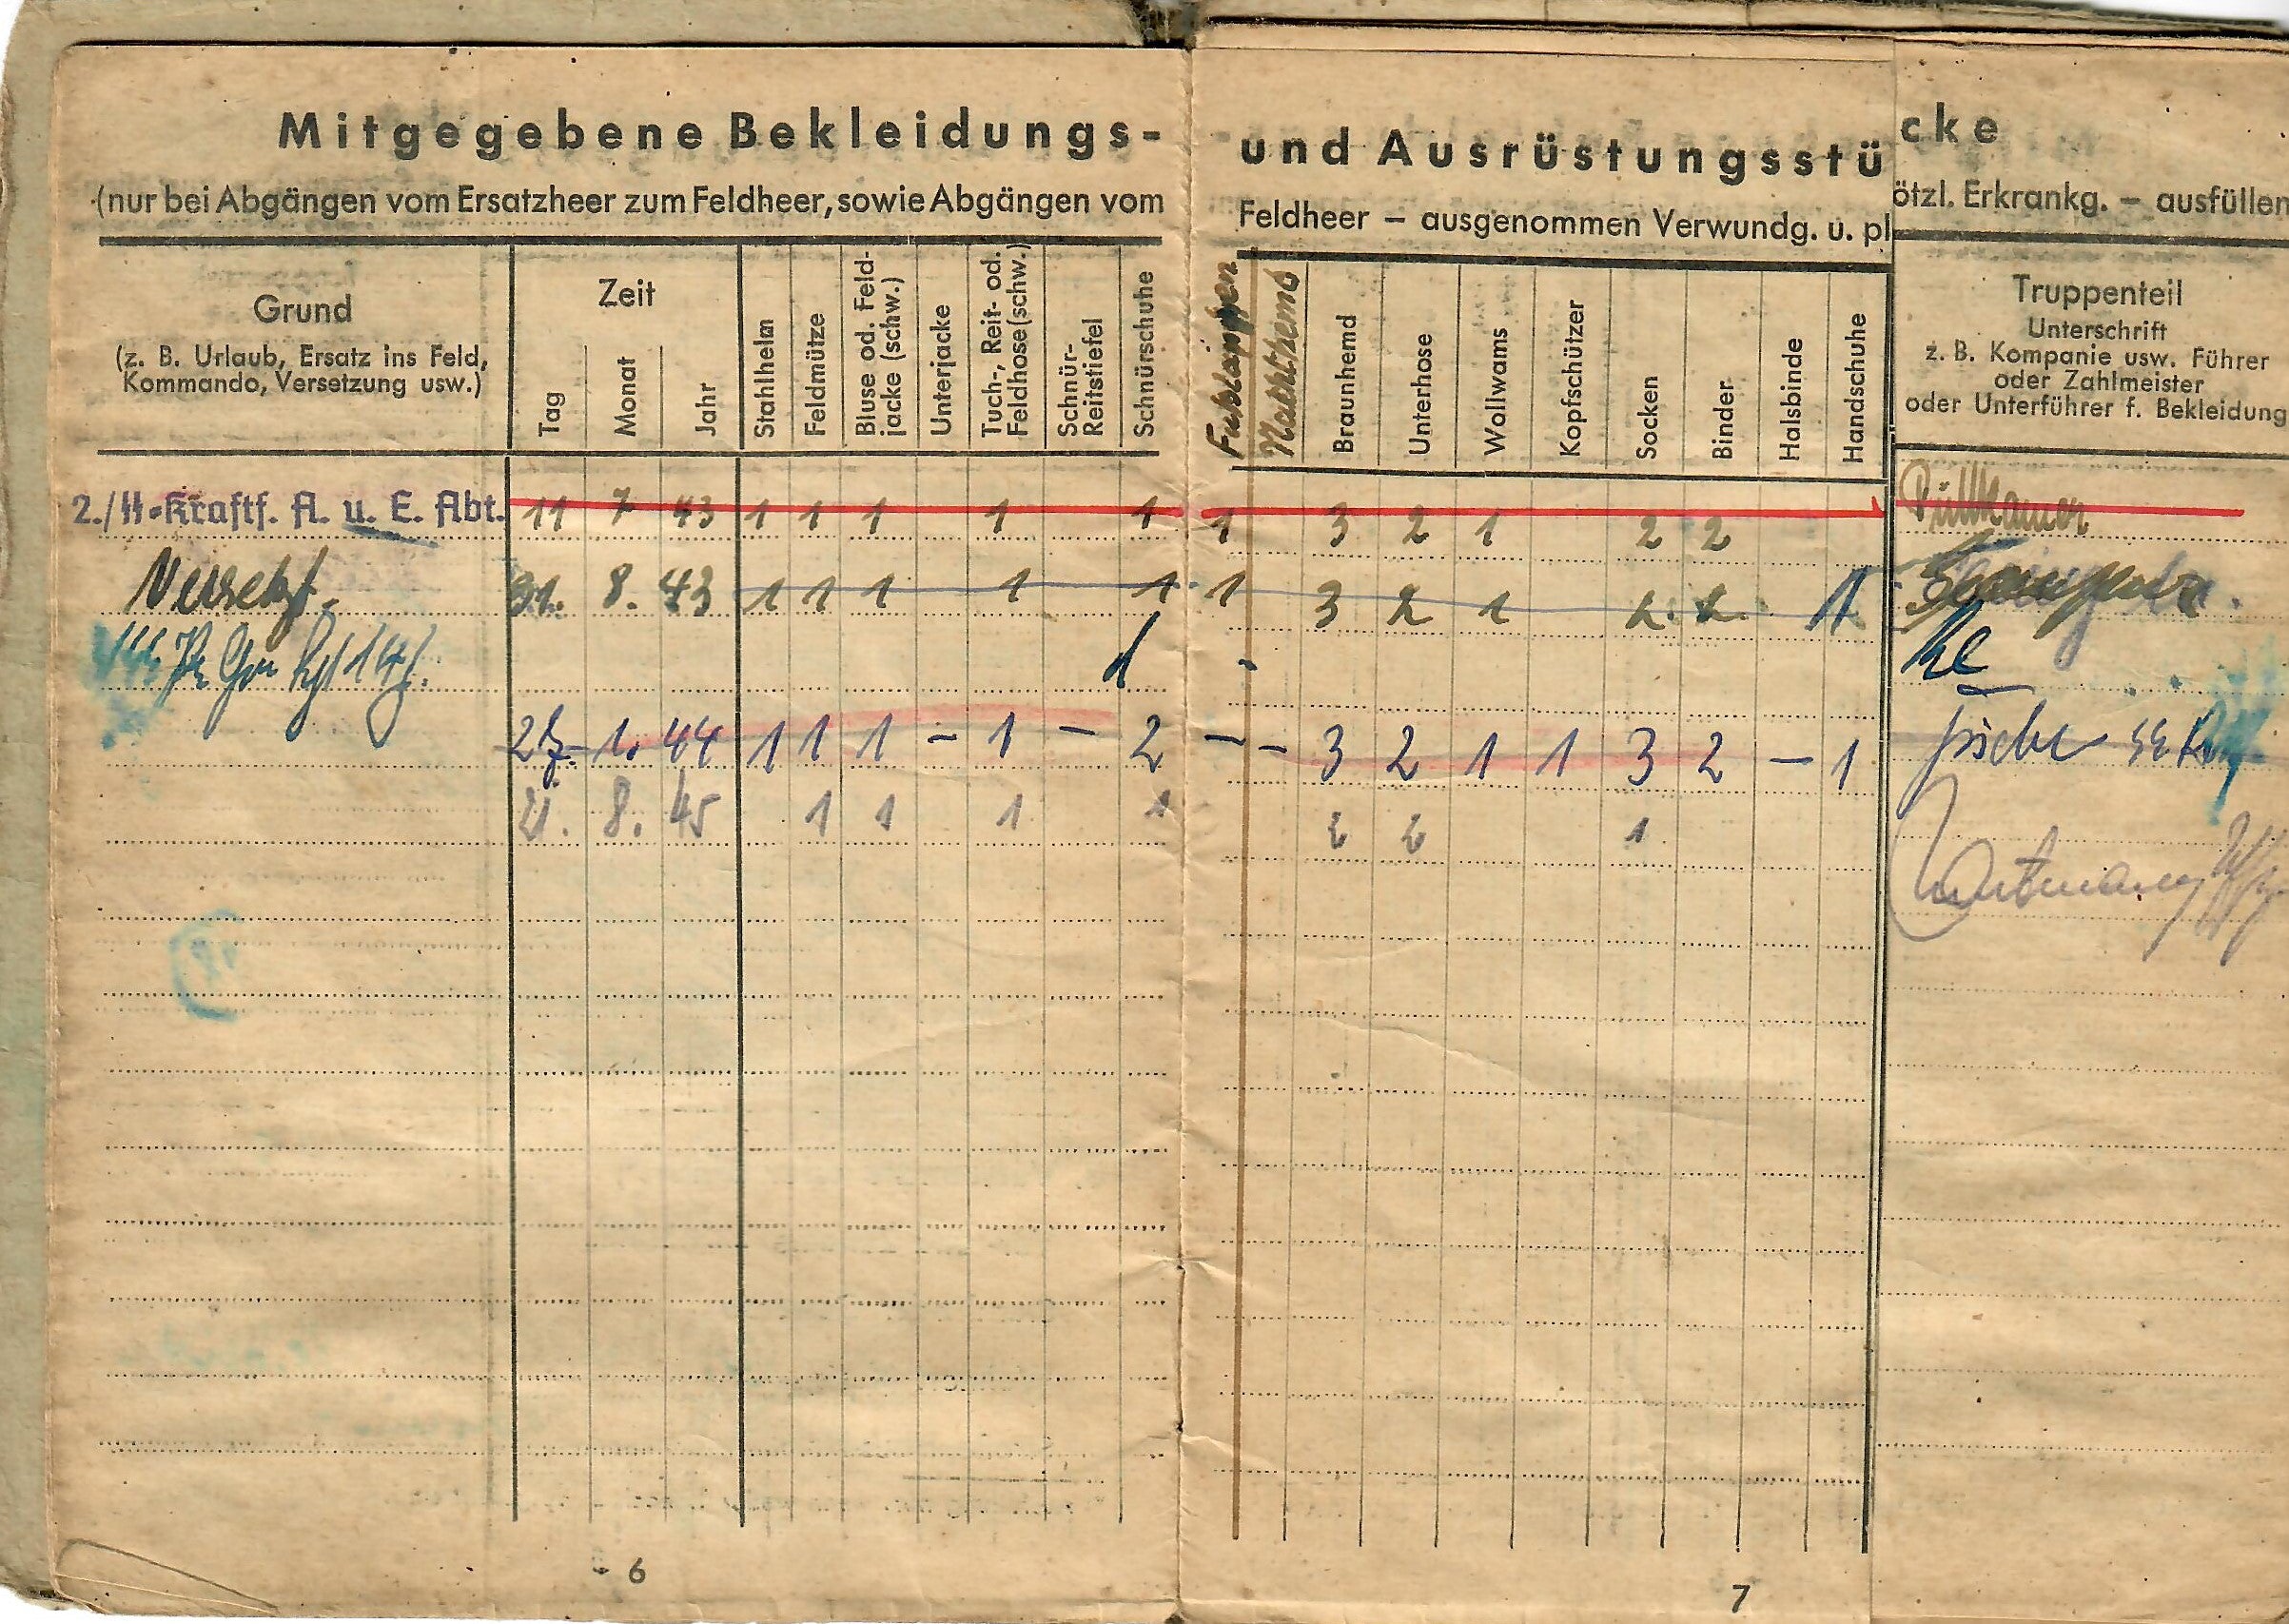 Mitgegebene Bekleidungs-
und Ausrüstungsstü
cke
(nur bei Abgängen vom Ersatzheer zum Feldheer, sowie Abgängen vom
Feldheer – ausgenommen Verwundg. u. pl
ötzl. Erkrankg. – ausfüllen
Grund
(z. B. Urlaub, Ersatz ins Feld,
Kommando, Versetzung usw.)
Zeit
Tag
Monat
Jahr
Stahlhelm
Feldmütze
Bluse od. Feld-
jacke (schw.)
Unterjacke
Tuch-, Reit- od.
Feldhose (schw.)
Schnür-
Reitstiefel
Schnürschuhe
Fußlappen
Nachthemd
Braunhemd
Unterhose
Wollwams
Kopfschützer
Socken
Binder
Halsbinde
Handschuhe
Truppenteil
Unterschrift
z. B. Kompanie usw. Führer
oder Zahlmeister
oder Unterführer f. Bekleidung
2./SS-Kraftf. A. u. E. Abt. 11 7 43 1 1 1 1 1 1 3 2 1 2 2
Versetzt. 31. 8. 43 1 1 1 1 1 1 3 2 1 2. 2. 1
1. 44 1 1 1 – 1 – 2 – – 3 2 1 1 3 2 – 1
21. 8. 45 1 1 1 1 2 2 1
6
7